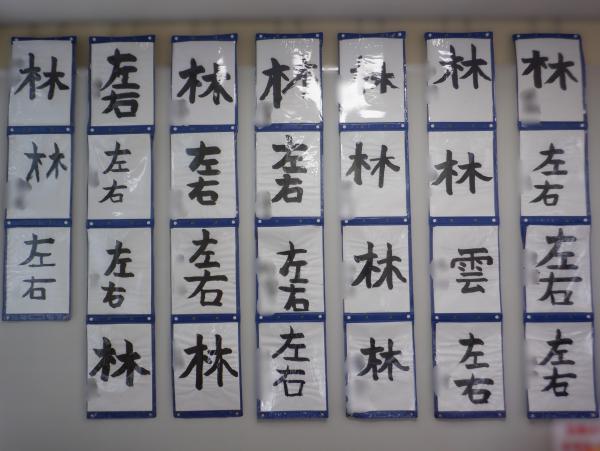 林
左右
林
林
林
林
林
林
左右
左右
左右
林
林
左右
左右
左右
左右
左右
林
雲
左右
林
林
左右
林
左右
左右